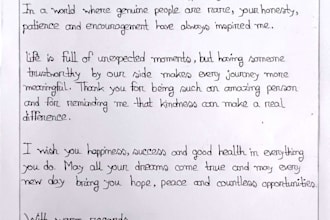 In a world where genuine people are rare, your honesty,
patience and encouragement have always inspired me.
Life is full of unexpected moments, but having someone
trustworthy by our side makes every journey more
meaningful. Thank you for being such an amazing person
and for reminding me that kindness can make a real
difference.
I wish you happiness, success and good health in everything
you do. May all your dreams come true and may every
new day bring you hope, peace and countless opportunities.
With warm regards